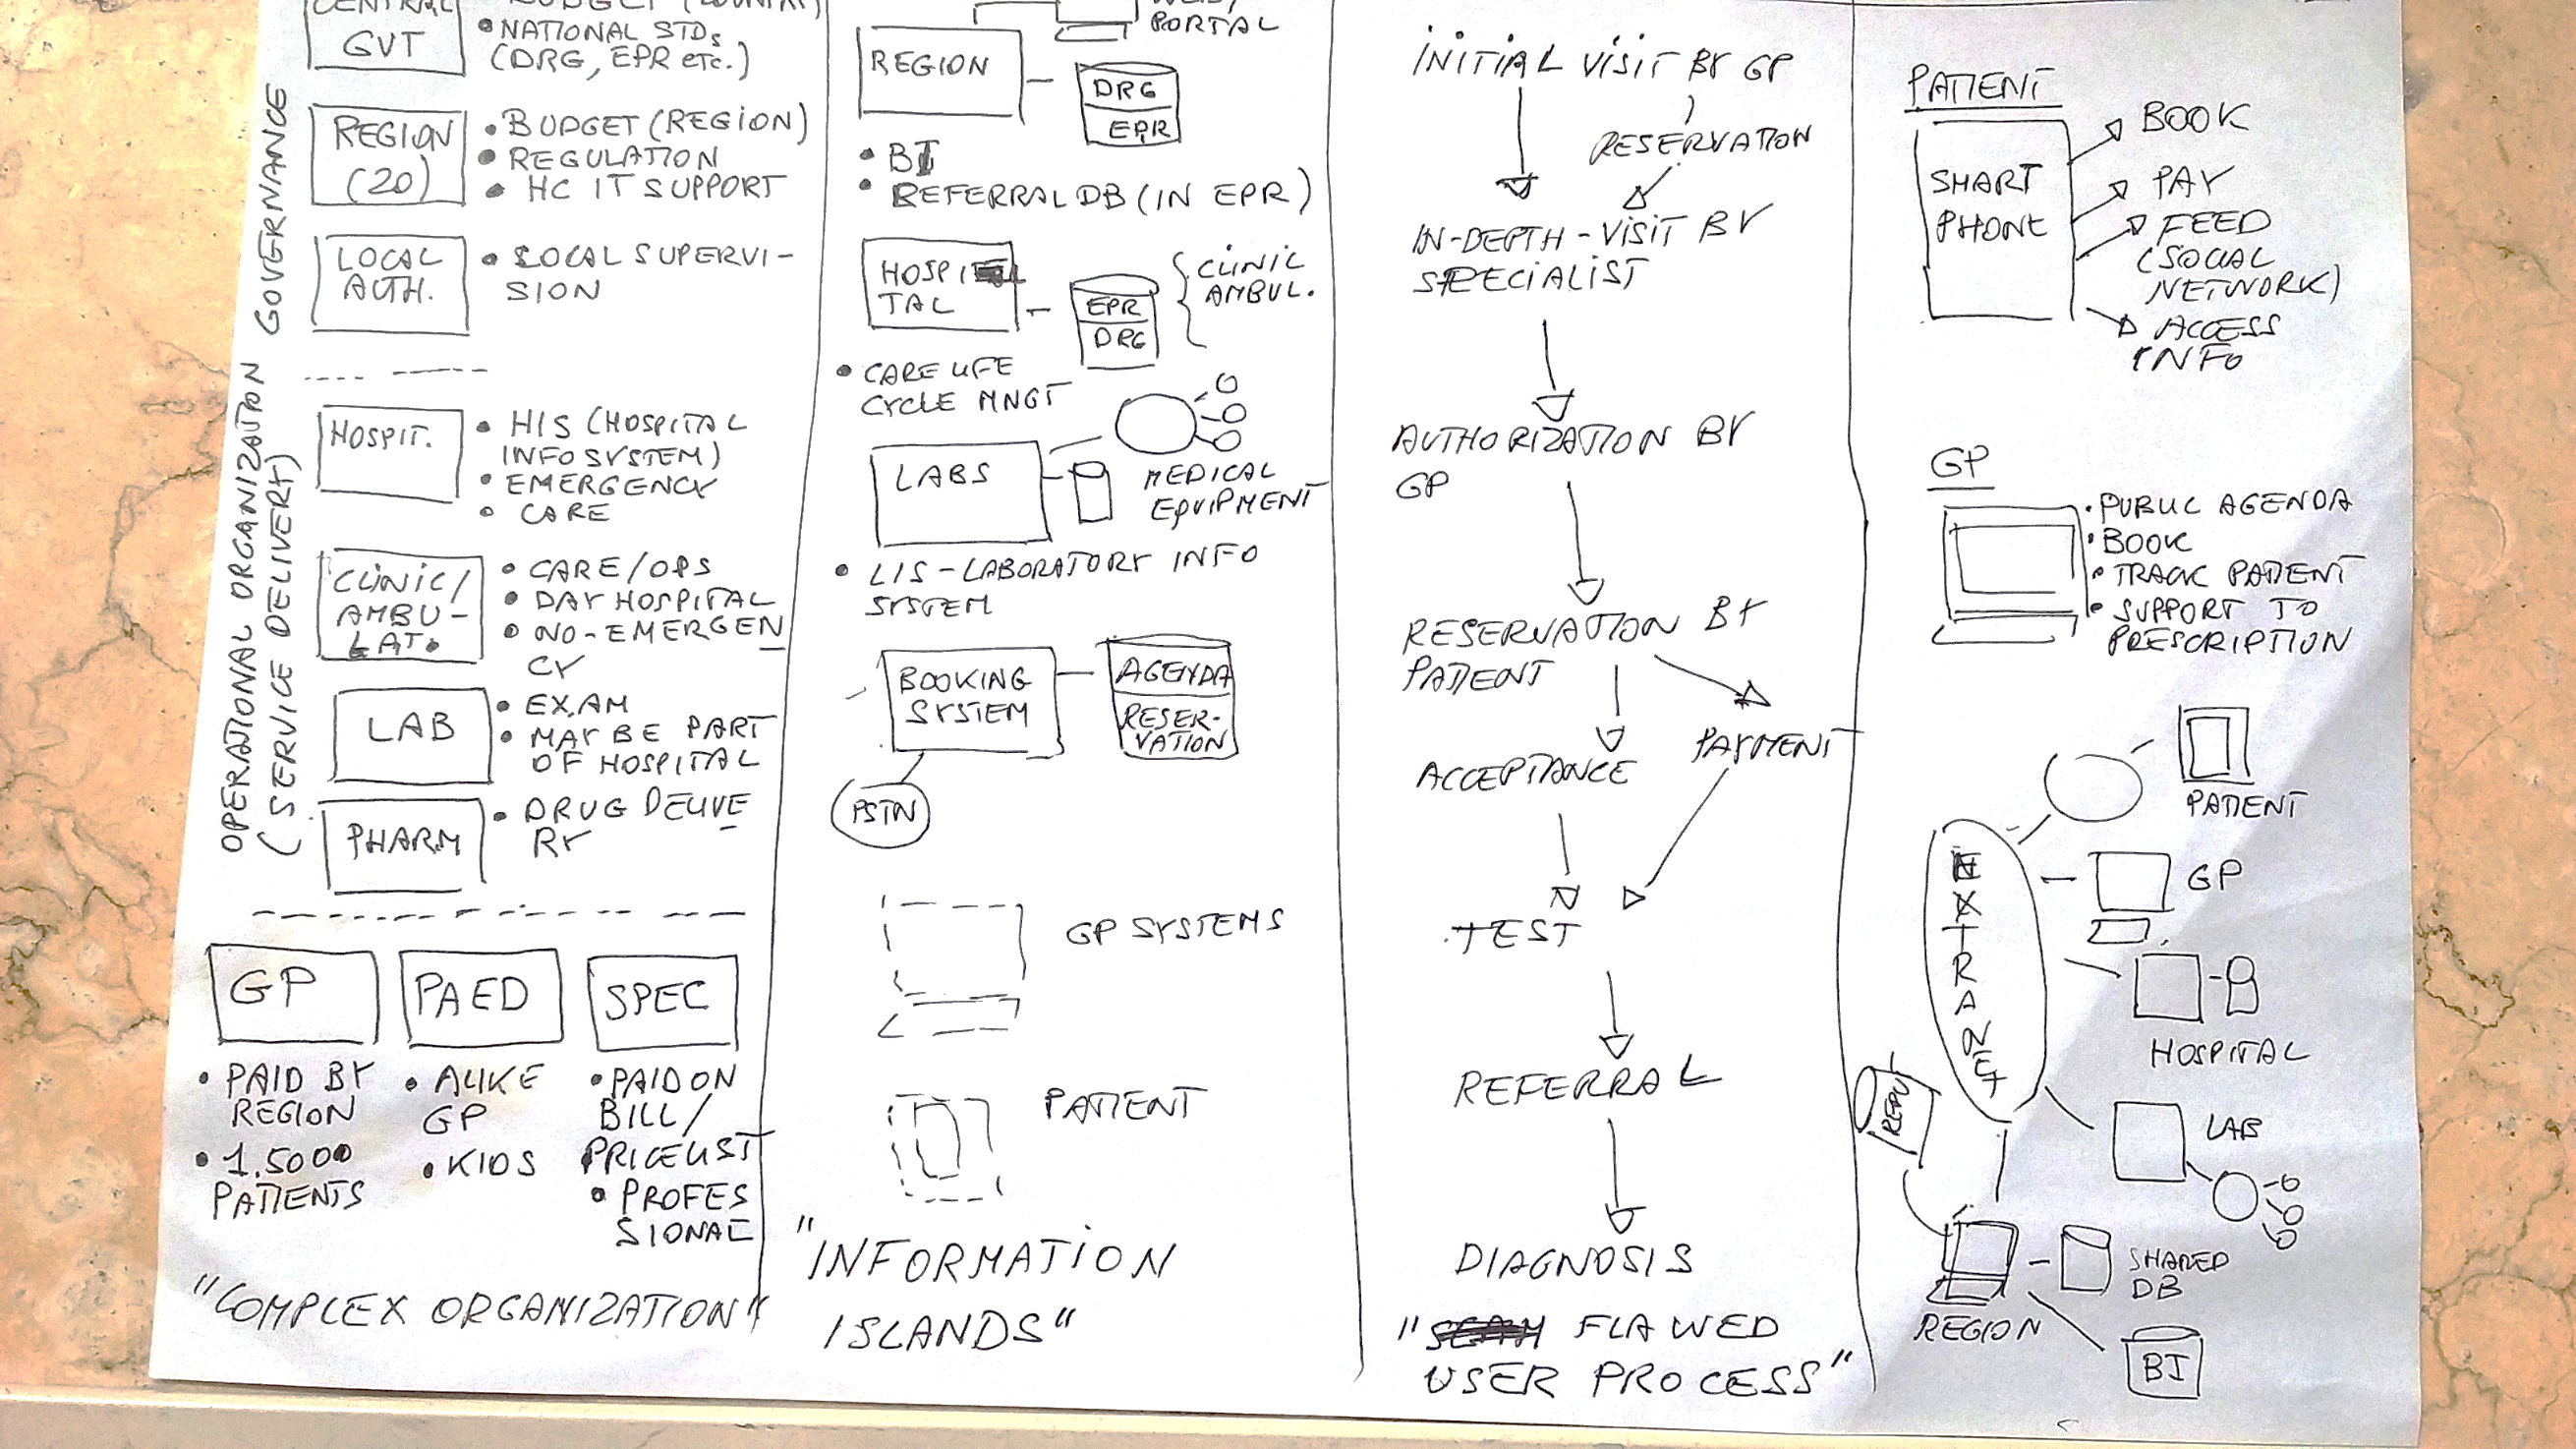 CENTRAL
GVT
BUDGET (COUNTRY)
• NATIONAL STDs
(DRG, EPR etc.)
GOVERNANCE
REGION
(20)
• BUDGET (REGION)
• REGULATION
• HC IT SUPPORT
LOCAL
AUTH.
• LOCAL SUPERVI-
SION
OPERATIONAL ORGANIZATION
(SERVICE DELIVERY)
HOSPIT.
• HIS (HOSPITAL
INFO SYSTEM)
• EMERGENCY
• CARE
CLINIC/
AMBU-
LAT.
• CARE/OPS
• DAY HOSPITAL
• NO-EMERGEN
CY
LAB
• EXAM
• MAY BE PART
OF HOSPITAL
PHARM
• DRUG DELIVE
RY
GP
• PAID BY
REGION
• 1.5000
PATIENTS
PAED
• ALIKE
GP
• KIDS
SPEC
• PAID ON
BILL/
PRICELIST
• PROFES
SIONAL
"COMPLEX ORGANIZATION"
PORTAL
REGION
DRG
EPR
• BI
• REFERRAL DB (IN EPR)
HOSPI
TAL
EPR
DRG
CLINIC
AMBUL.
• CARE LIFE
CYCLE MNGT
LABS
MEDICAL
EQUIPMENT
• LIS - LABORATORY INFO
SYSTEM
BOOKING
SYSTEM
AGENDA
RESER-
VATION
PSTN
GP SYSTEMS
PATIENT
"INFORMATION
ISLANDS"
INITIAL VISIT BY GP
RESERVATION
IN-DEPTH-VISIT BY
SPECIALIST
AUTHORIZATION BY
GP
RESERVATION BY
PATIENT
ACCEPTANCE
PAYMENT
TEST
REFERRAL
DIAGNOSIS
" FLAWED
USER PROCESS"
PATIENT
SMART
PHONE
BOOK
PAY
FEED
(SOCIAL
NETWORK)
ACCESS
INFO
GP
• PUBLIC AGENDA
• BOOK
• TRACK PATIENT
• SUPPORT TO
PRESCRIPTION
EXTRANET
PATIENT
GP
HOSPITAL
LAB
REGION
SHARED
DB
BI